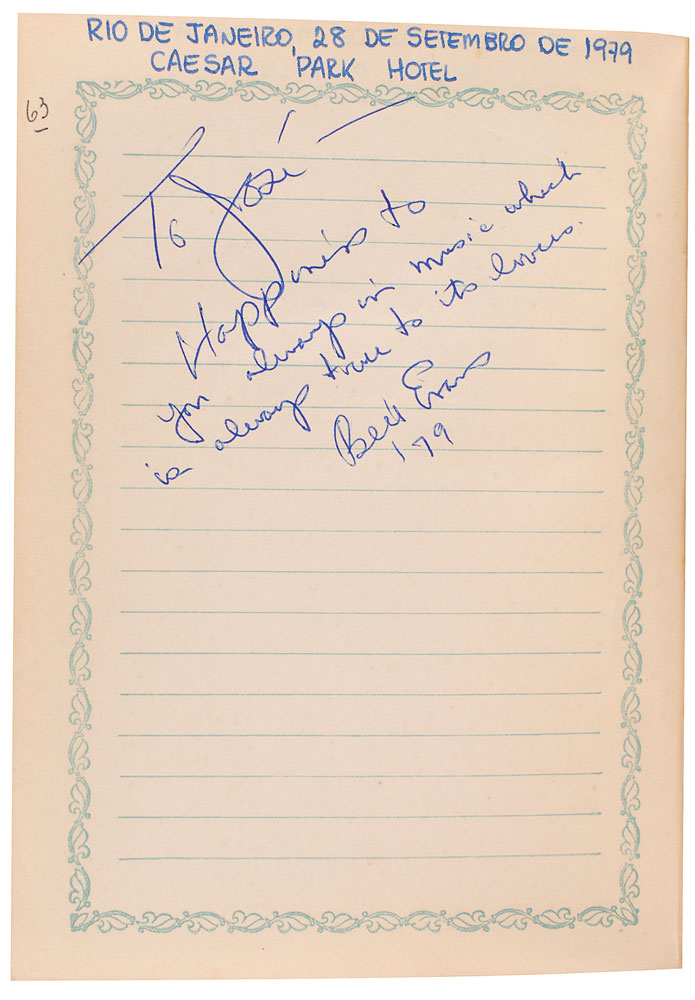 RIO DE JANEIRO, 28 DE SETEMBRO DE 1979
CAESAR PARK HOTEL
63
To José
Happiness to
you always in music which
is always true to its lovers.
Bill Evans
'79